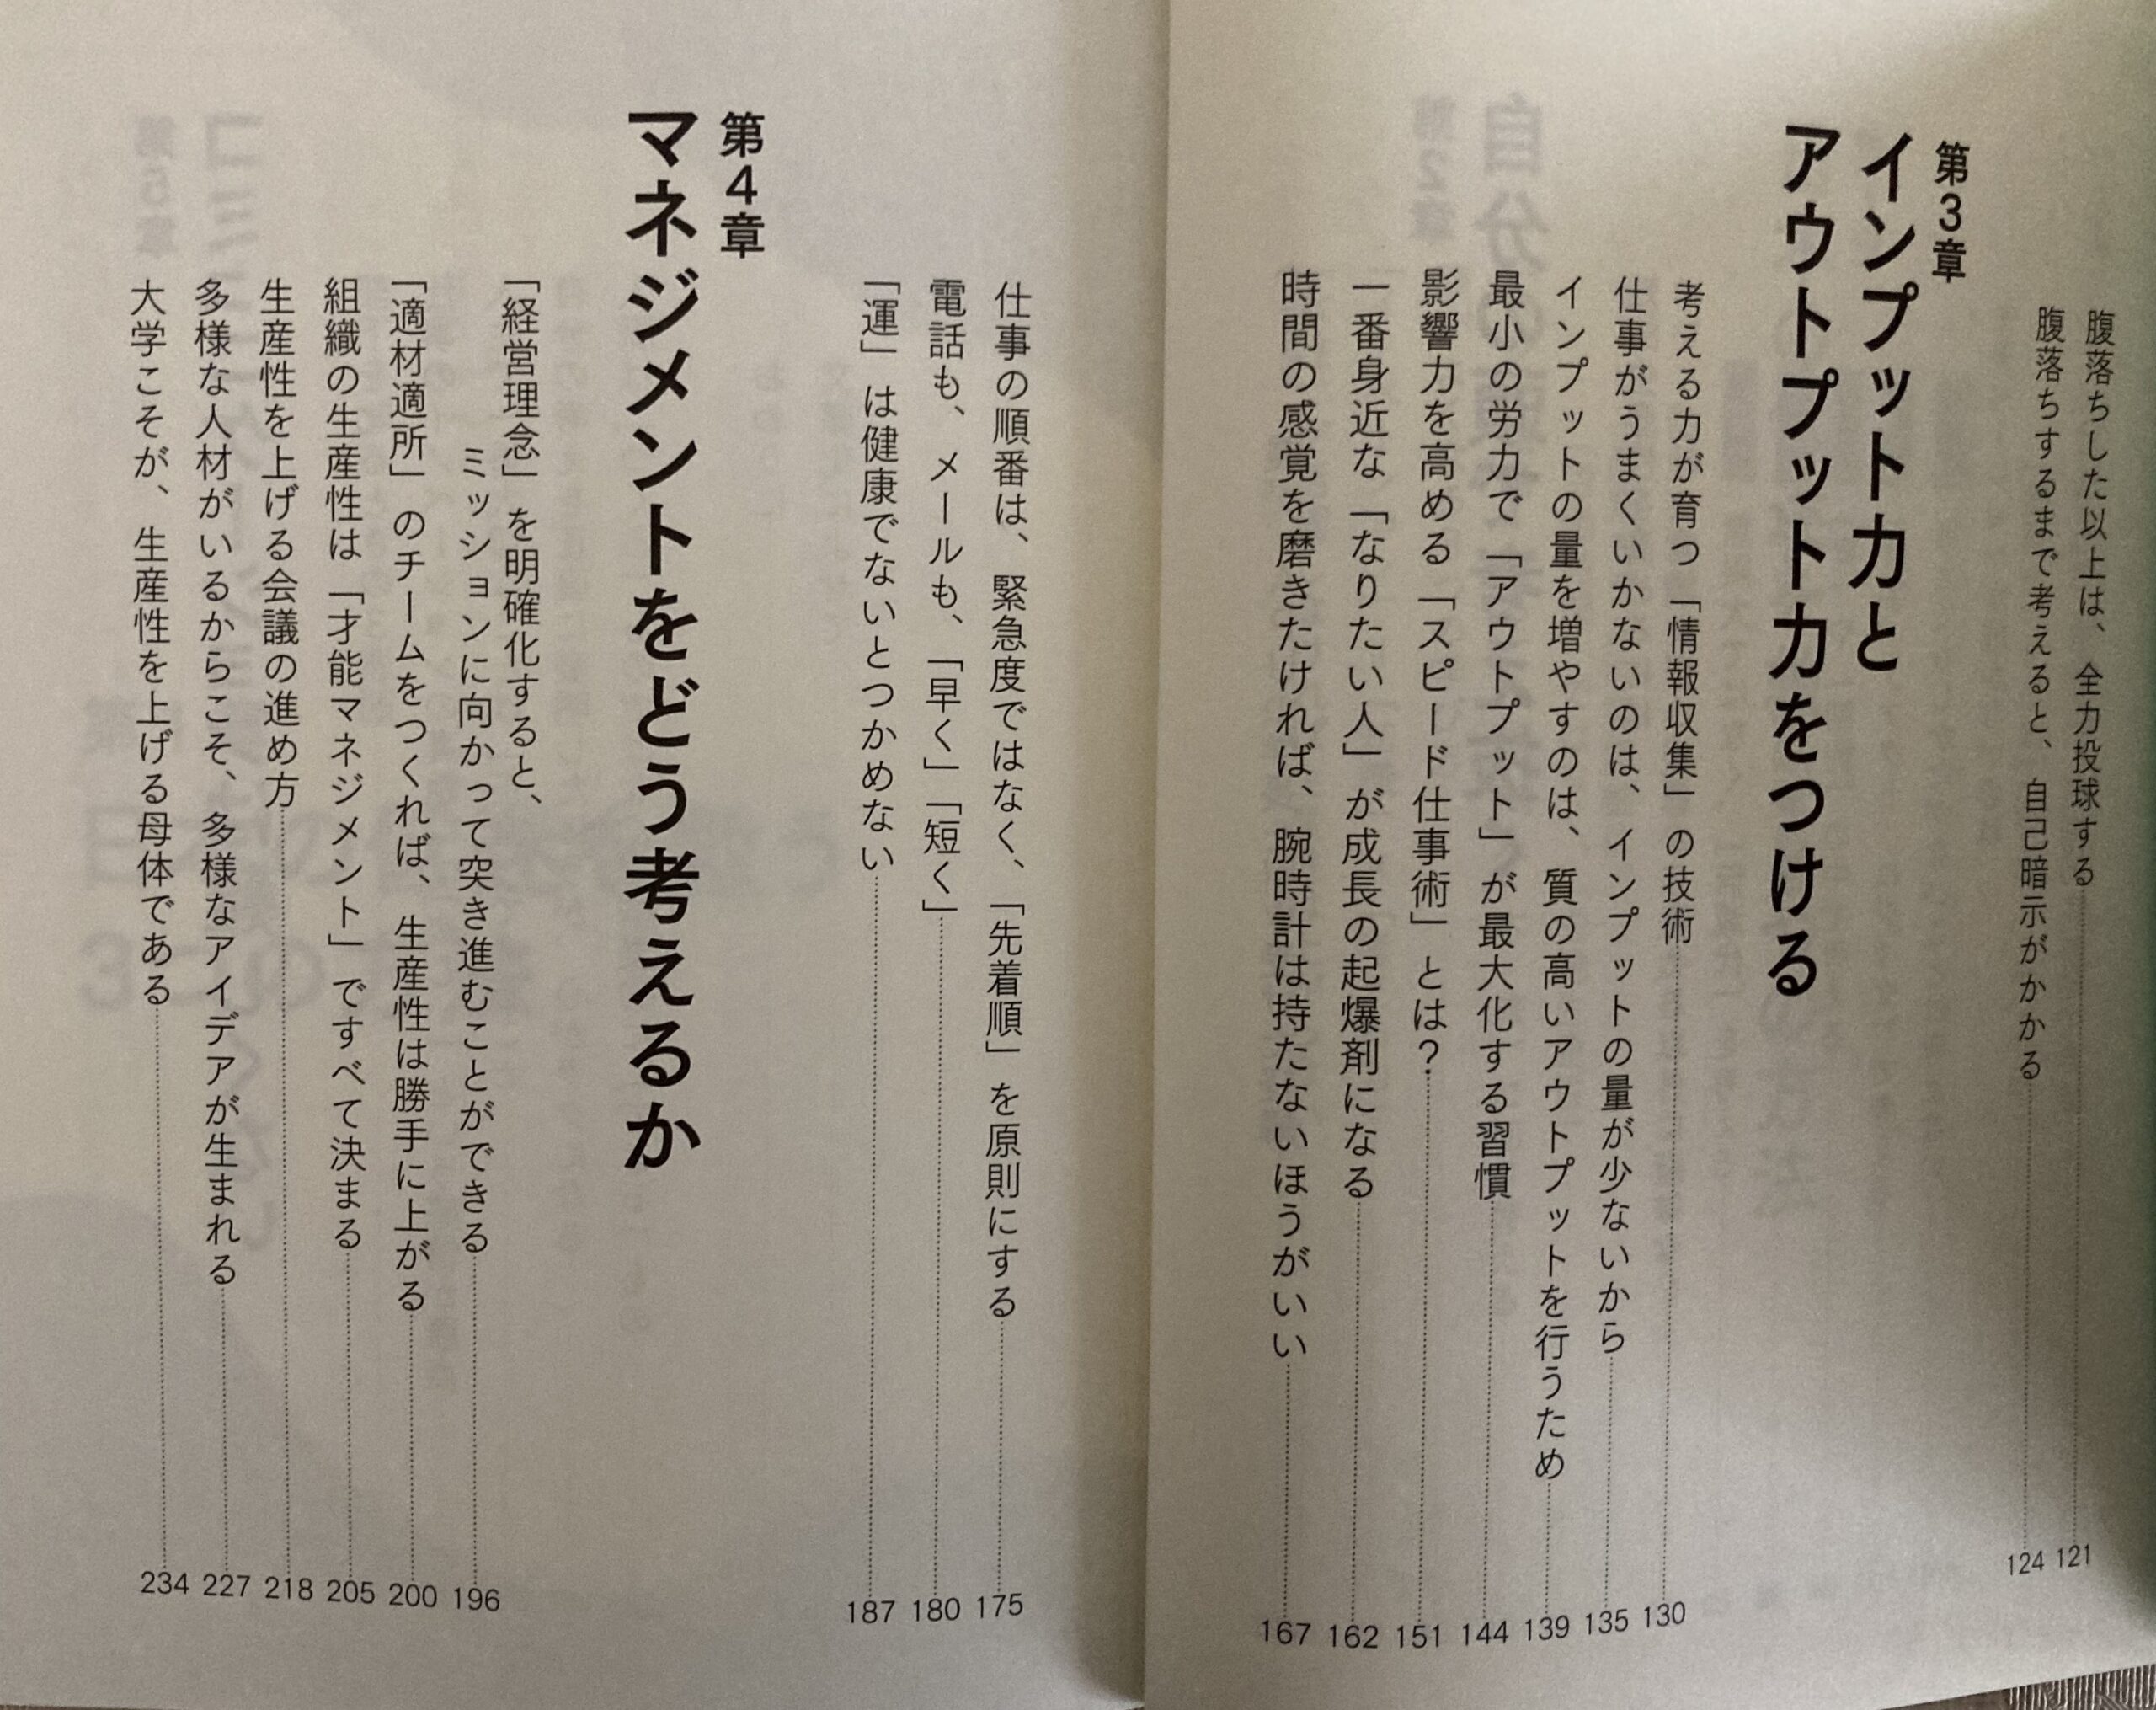 腹落ちした以上は、全力投球する……121
腹落ちするまで考えると、自己暗示がかかる……124
第3章
インプット力と
アウトプット力をつける
考える力が育つ「情報収集」の技術……130
仕事がうまくいかないのは、インプットの量が少ないから……135
インプットの量を増やすのは、質の高いアウトプットを行うため……139
最小の労力で「アウトプット」が最大化する習慣……144
影響力を高める「スピード仕事術」とは？……151
一番身近な「なりたい人」が成長の起爆剤になる……162
時間の感覚を磨きたければ、腕時計は持たないほうがいい……167
仕事の順番は、緊急度ではなく、「先着順」を原則にする……175
電話も、メールも、「早く」「短く」……180
「運」は健康でないとつかめない……187
第4章
マネジメントをどう考えるか
「経営理念」を明確化すると、
ミッションに向かって突き進むことができる……196
「適材適所」のチームをつくれば、生産性は勝手に上がる……200
組織の生産性は「才能マネジメント」ですべて決まる……205
生産性を上げる会議の進め方……218
多様な人材がいるからこそ、多様なアイデアが生まれる……227
大学こそが、生産性を上げる母体である……234